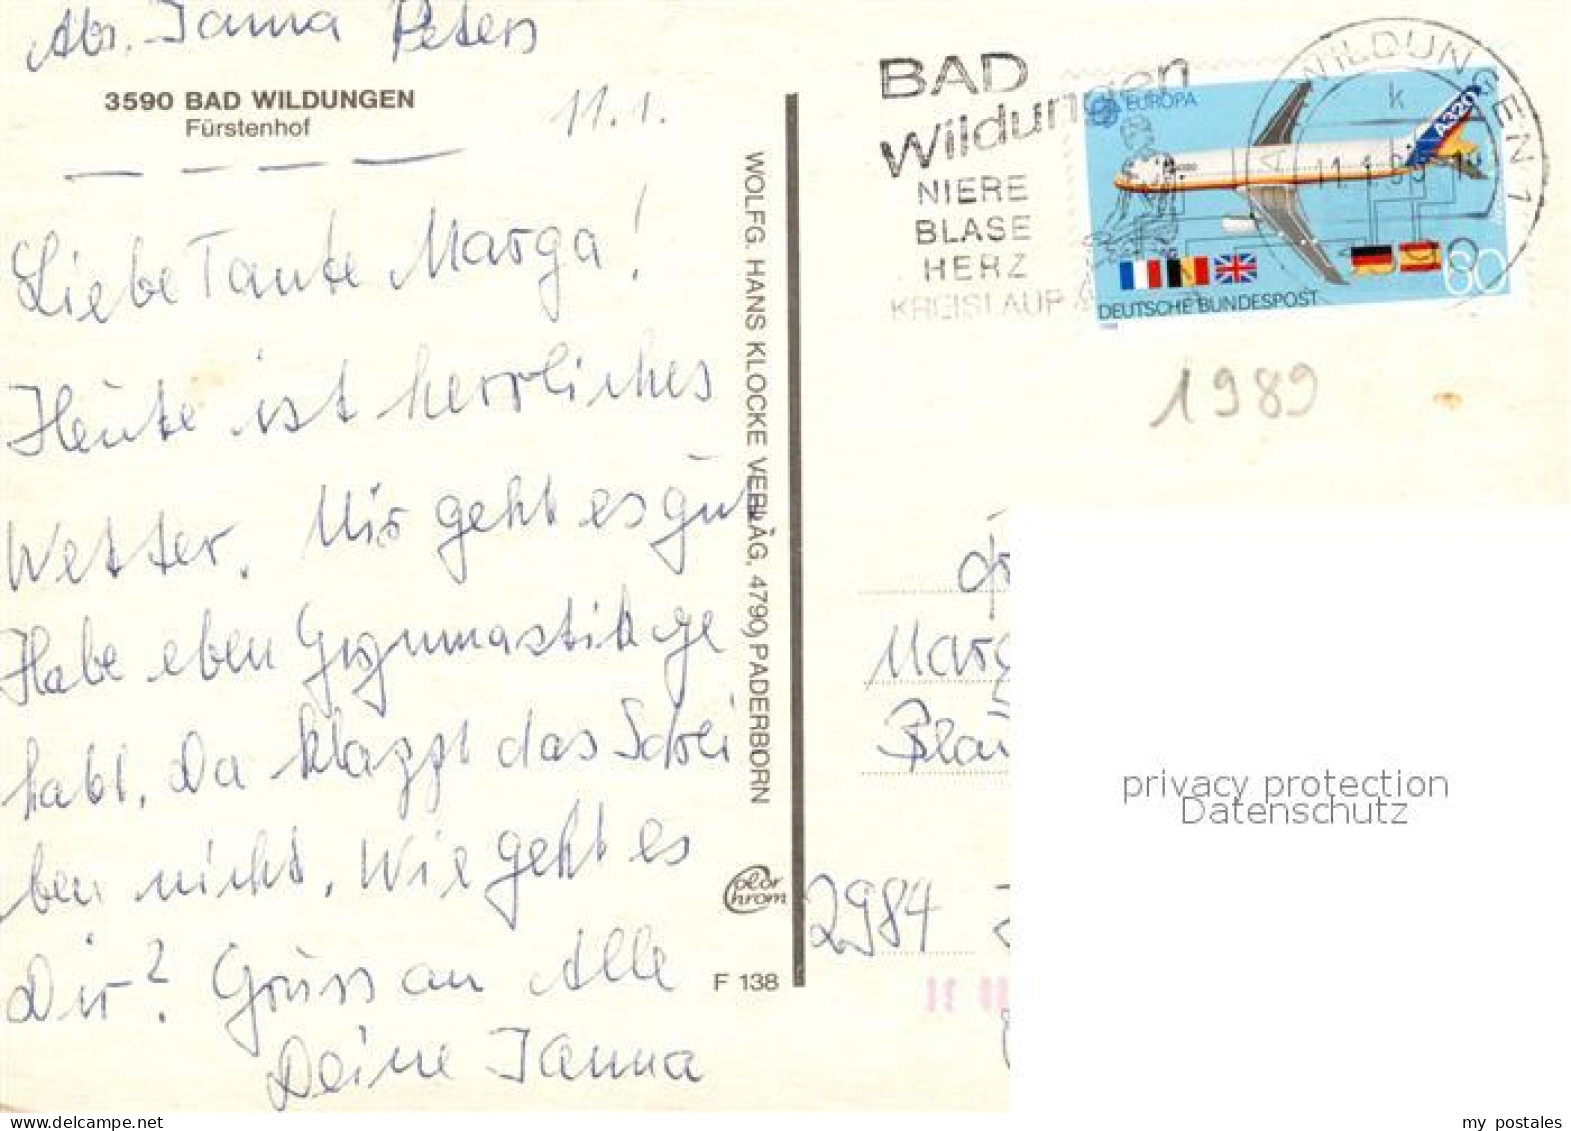 Abs. Janna Peters
3590 BAD WILDUNGEN
Fürstenhof
11.1.
Liebe Tante Marga!
Heute ist herrliches
Wetter. Mir geht es gut
Habe eben Gygnnastik ge
habt. Da klappt das Schrei
ben nicht. Wie geht es
Dir? Grüss an Alle
Deine Janna
WOLFG. HANS KLOCKE VERLAG, 4790 PADERBORN
Color Chrom
F 138
BAD
Wildungen
NIERE
BLASE
HERZ
KREISLAUF
EUROPA
A320
DEUTSCHE BUNDESPOST
80
WILDUNGEN 1
k
1989
Marg
Blau
2984
privacy protection
Datenschutz
www.delcampe.net
my_postales